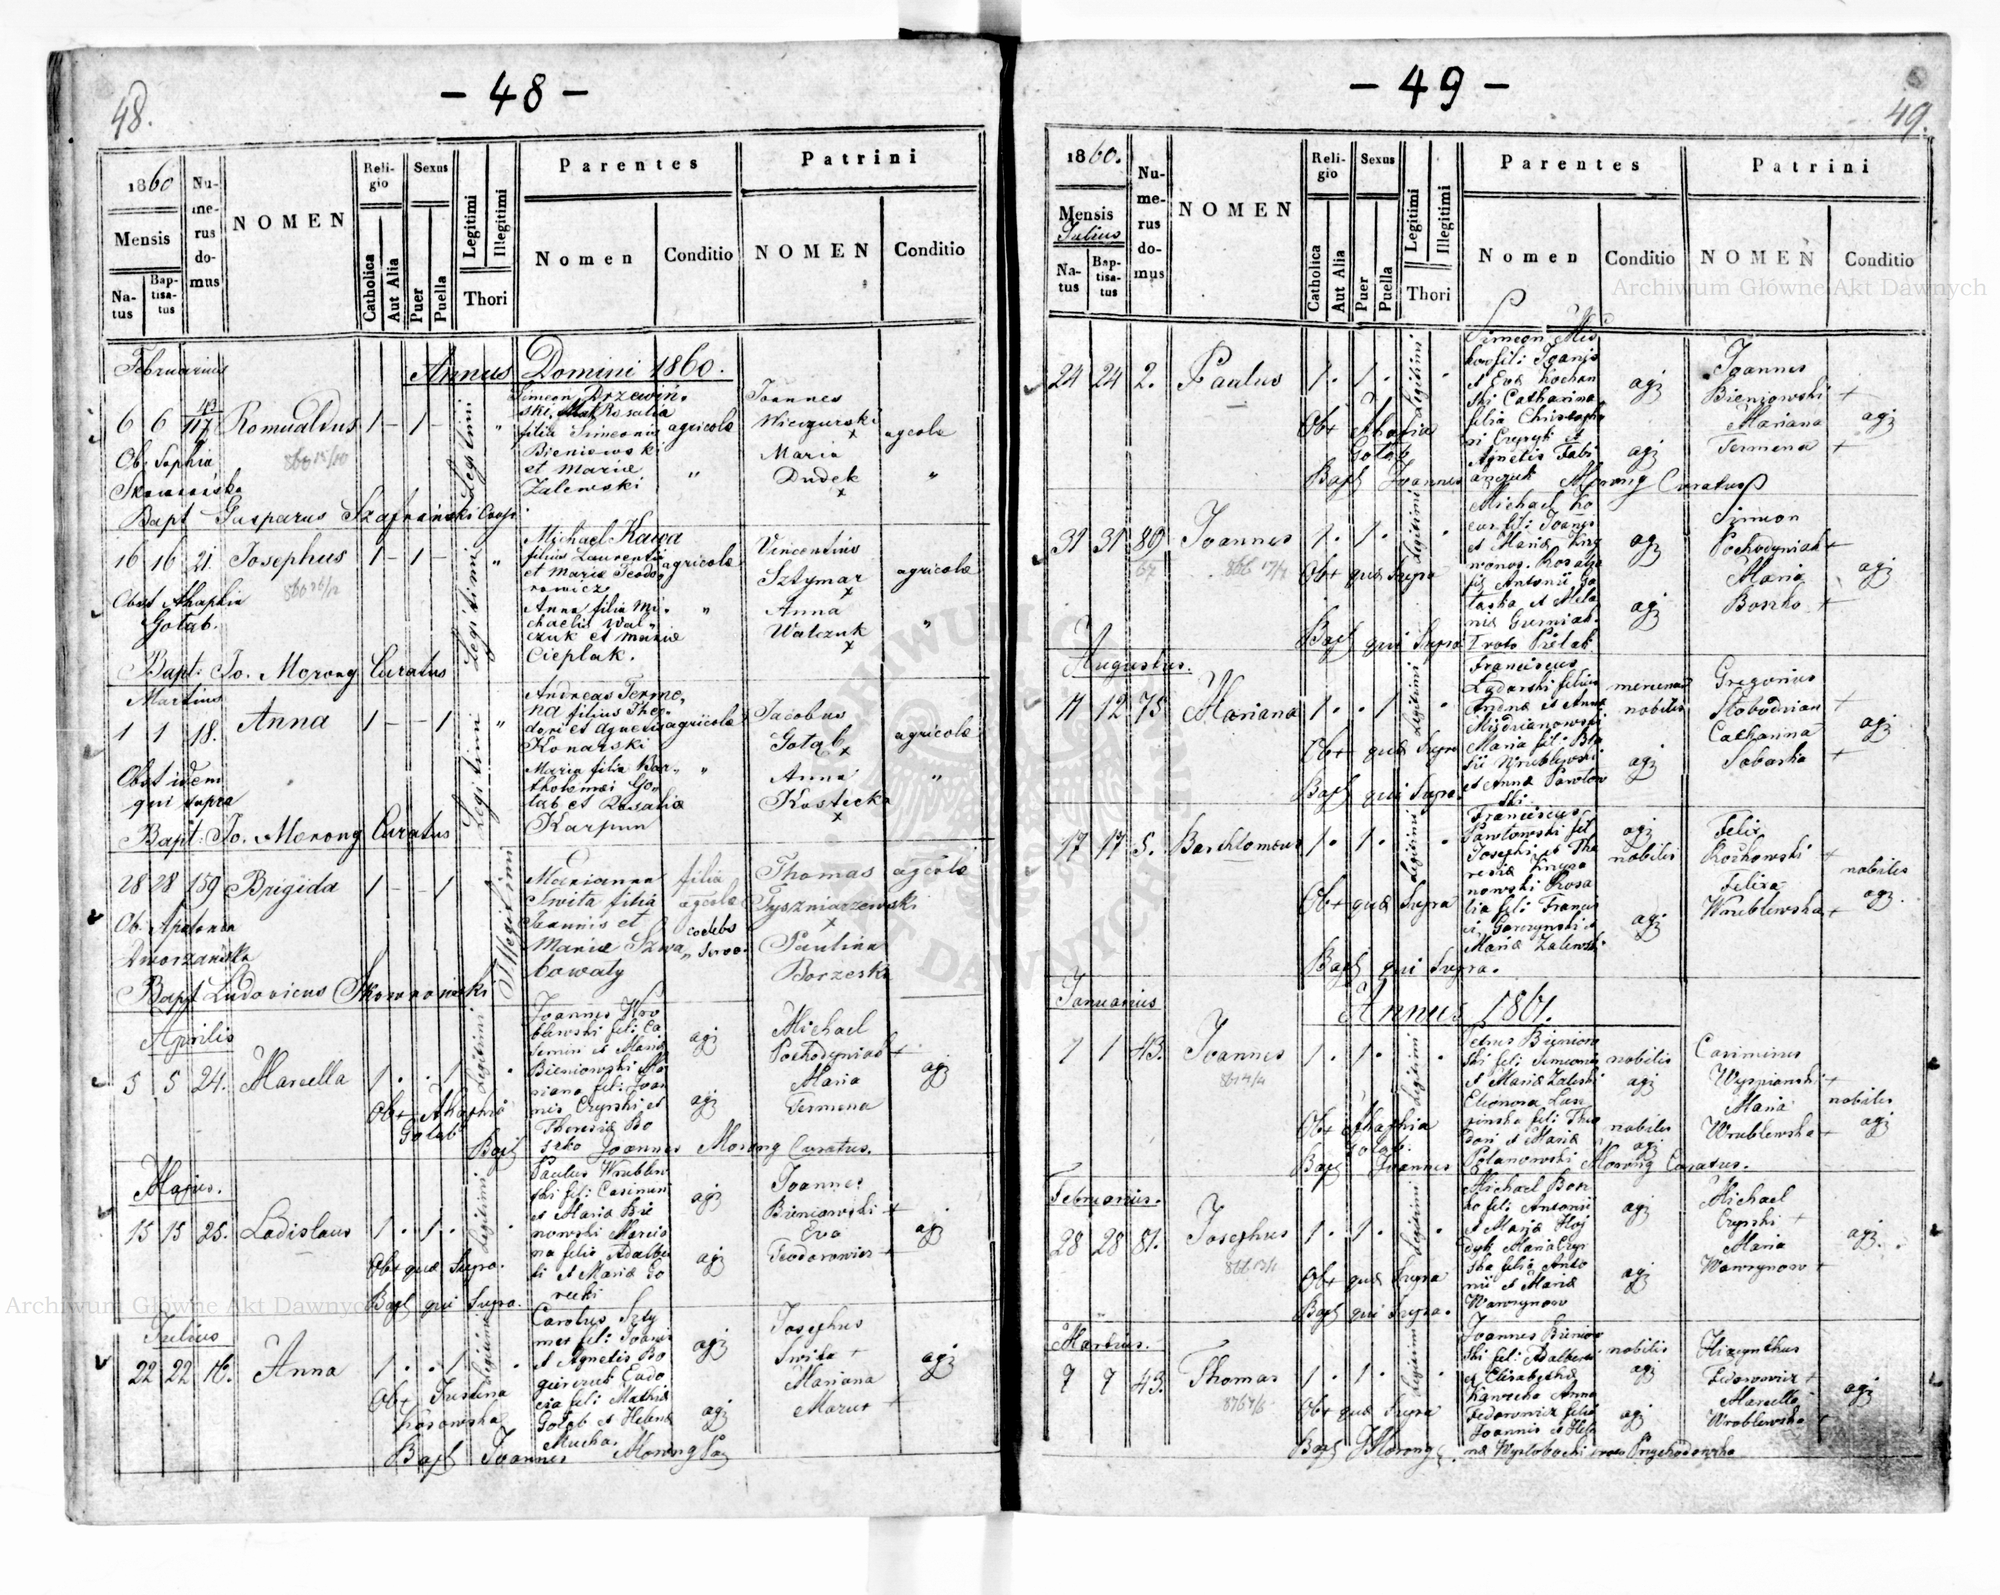 - 48 -
48.
1860
Mensis
Na-
tus
Bap-
tisa-
tus
Nu-
me-
rus
do-
mus
NOMEN
Reli-
gio
Catholica
Aut Alia
Sexus
Puer
Puella
Legitimi
Illegitimi
Thori
Parentes
Nomen
Conditio
Patrini
NOMEN
Conditio
Februarius
Annus Domini 1860.
6 6 43 117 Romualdus 1 - 1 - "
Legitimi
Simeon Drzewiń-
ski, Rosalia
filia Simeonis
Bieniowsk
et Mariæ
Zalewski
agricolæ
"
Joannes
Wieczurski
x
Maria
Dudek
x
agcolæ
"
Ob. Sophia
Skowrońska
860 15/10
Bapt Gasparus Szafrański Coop.
16 16 21. Josephus 1 - 1 - "
Legitimi
Michael Kawa
filius Laurentii
et Mariæ Teodo-
rowicz
Anna filia Mi-
chaelis Wal-
czuk et Mariæ
Cieplak.
agricolæ
"
Vincentius
Sztymar
x
Anna
Walczuk
x
agricolæ
"
Obst Ahaphia
Gołąb.
Bapt: Jo. Morong Curatus
Martius
1 1 18. Anna 1 - - 1 "
Legitimi
Andreas Terme-
na filius Theo-
dori et Agnetis
Konarski
Maria filia Bar-
tholomæi Go-
łąb et Rosaliæ
Karpun
agricolæ
"
Jacobus
Gołąb
x
Anna
Kostecka
x
agricolæ
"
Obst idem
qui supra
Bapt: Jo. Morong Curatus
28 28 159 Brigida 1 - - 1
Illegitimi
Marianna
Swita filia
Joannis et
Mariæ Szwa
bowaty
filia
agcolæ
Thomas
Tyszniaczewski
x
Paulina
Borzeska
agcolæ
Ob. Apolonia
Dworzańska
Bapt Ludovicus Skowroński
Aprilis
5 5 24. Marcella 1 . . 1 .
Legitimi
Joannes Wro
blewski fili: Ca
simiri et Mariæ
Bieniowski Ma
rianna fili: Joan
nis Czyrski et
Theresiæ Bo
szko
agz
agz
Michael
Pochodyniak +
Maria
Termena
agz
Obst Ahaphia
Gołąb
Bapt Joannes Morong Curatus.
Majus.
15 15 25. Ladislaus 1 . 1 . .
Legitimi
Paulus Wrublew
ski fili: Casimiri
et Mariæ Bie
niowski Marcis
na filia Adalber
ti et Mariæ Go
recki
agz
agz
Joannes
Bieniowski +
Eva
Teodorowicz +
agz
Obst quæ Supra.
Bapt qui Supra.
Julius
22 22 16. Anna 1 . . 1 .
Legitimi
Carolus Szty
mer fili: Joanis
et Agnetis Bo
guszewski Eudo
cia fili: Mathiæ
Gołąb et Helenæ
Mucha.
agz
agz
Josephus
Swita +
Mariana
Mazur +
agz
Obst Justina
Kosowska
Bapt Joannes Morong
- 49 -
49.
1860.
Mensis
Julius
Na-
tus
Bap-
tisa-
tus
Nu-
me-
rus
do-
mus
NOMEN
Reli-
gio
Catholica
Aut Alia
Sexus
Puer
Puella
Legitimi
Illegitimi
Thori
Parentes
Nomen
Conditio
Patrini
NOMEN
Conditio
24 24 2. Paulus 1 . 1 . .
Legitimi
fili: Joanis
et Eva Kochan
ski Catharina
filia Christopho
ri Czyrski et
Agnetis Fabi
anczuk
agz
agz
Joannes
Bieniowski +
Mariana
Termena +
agz
Obst Ahaphia
Gołąb
Bapt Joannes Morong Curatus
31 31 89 Joannes 1 . 1 . .
67
866 17/7
Legitimi
Michael Ko
fili: Joanis
et Mariæ
Rosalia
fil: Antonii Go
et Mela
niæ Gumiak
agz
agz
Simeon
Pochodyniak +
Maria
Boszko +
agz
Obst quæ Supra
Bapt qui Supra
Augustus.
11 12 75 Mariana 1 . . 1 .
Legitimi
Franciscus
Ladorski filius
et Anna
Maria fil: Ba
sil Wrublewski
et Annæ Pawłow
ski.
nobilis
agz
Gregorius
Słobodzian +
Catharina
Sobaska +
agz
Obst quæ Supra
Bapt qui Supra.
17 17 5. Bartholomeus 1 . 1 . .
Legitimi
Franciscus
Pawłowski fil
Josephi et The
resiæ Krzysa
nowski Rosa
lia fil: Francis
ci Gorczynski et
Mariæ Zalewski
agz
nobilis
agz
Felix
Rochowski +
Felixa
Wrublewska +
nobilis
agz.
Obst quæ Supra
Bapt qui Supra.
Januarius
Annus 1861.
1 1 43. Joannes 1 . 1 . .
861 4/4
Legitimi
Petrus Bieniow
ski fil: Simeonis
et Mariæ Zaleski
Eleonora Las
zinska fil: Theo
dori et Mariæ
Polanowski
nobilis
agz
nobilis
agz
Casimirus
Wyspianski +
Maria
Wrublewska +
nobilis
agz
Obst Ahaphia
Gołąb.
Bapt Joannes Morong Curatus.
Februarius.
28 28 81. Josephus 1 . 1 . .
Legitimi
Michael Bosz
ko fil: Antonii
et Mariæ Hoj
dyk Maria Czyr
ska filia Anto
nii et Mariæ
Wawrynow
agz
agz
Michael
Czyrski +
Maria
Wawrynow +
agz.
Obst quæ Supra
Bapt qui Supra.
Martius.
9 9 43. Thomas 1 . 1 . .
876 7/6
Legitimi
Joannes Bieniow
ski fil: Adalberti
et Elisabethæ
Kawecka Anna
Fedorowicz filia
Joannis et Hele
næ Wyslobocki
nobilis
agz
agz
Hiacynthus
Fedorowicz +
Marcella
Wroblewska +
agz
Obst quæ Supra
Bapt J Morong
Archiwum Główne Akt Dawnych
Archiwum Główne Akt Dawnych